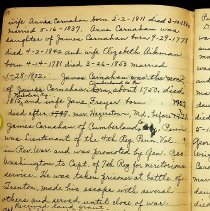 wife Anna Carnahan born 2-2-1791 died
Married 5-16-1837. Anna Carnahan was
daughter of James Carnahan born 7-29-1777
died 4-2-1842 and wife Elizabeth
born 4-14-1781 died 2-26-1853 married
1-28-1802. James Carnahan was the son
of James Carnahan, born, about 1750. died
1813, and wife Jane Frazier born
died after near Hagerstown, Md. before
James Carnahan of Cumberland Co, Penn
was Lieutenant of the 4th Reg. Penn. Vol.
in Rev. War and was promoted by Gen. Geo
Washington to Capt. of 7th Reg for meritorious
service. He was taken prisoner at battle of
Trenton, made his escape with several
others and served until close of war.